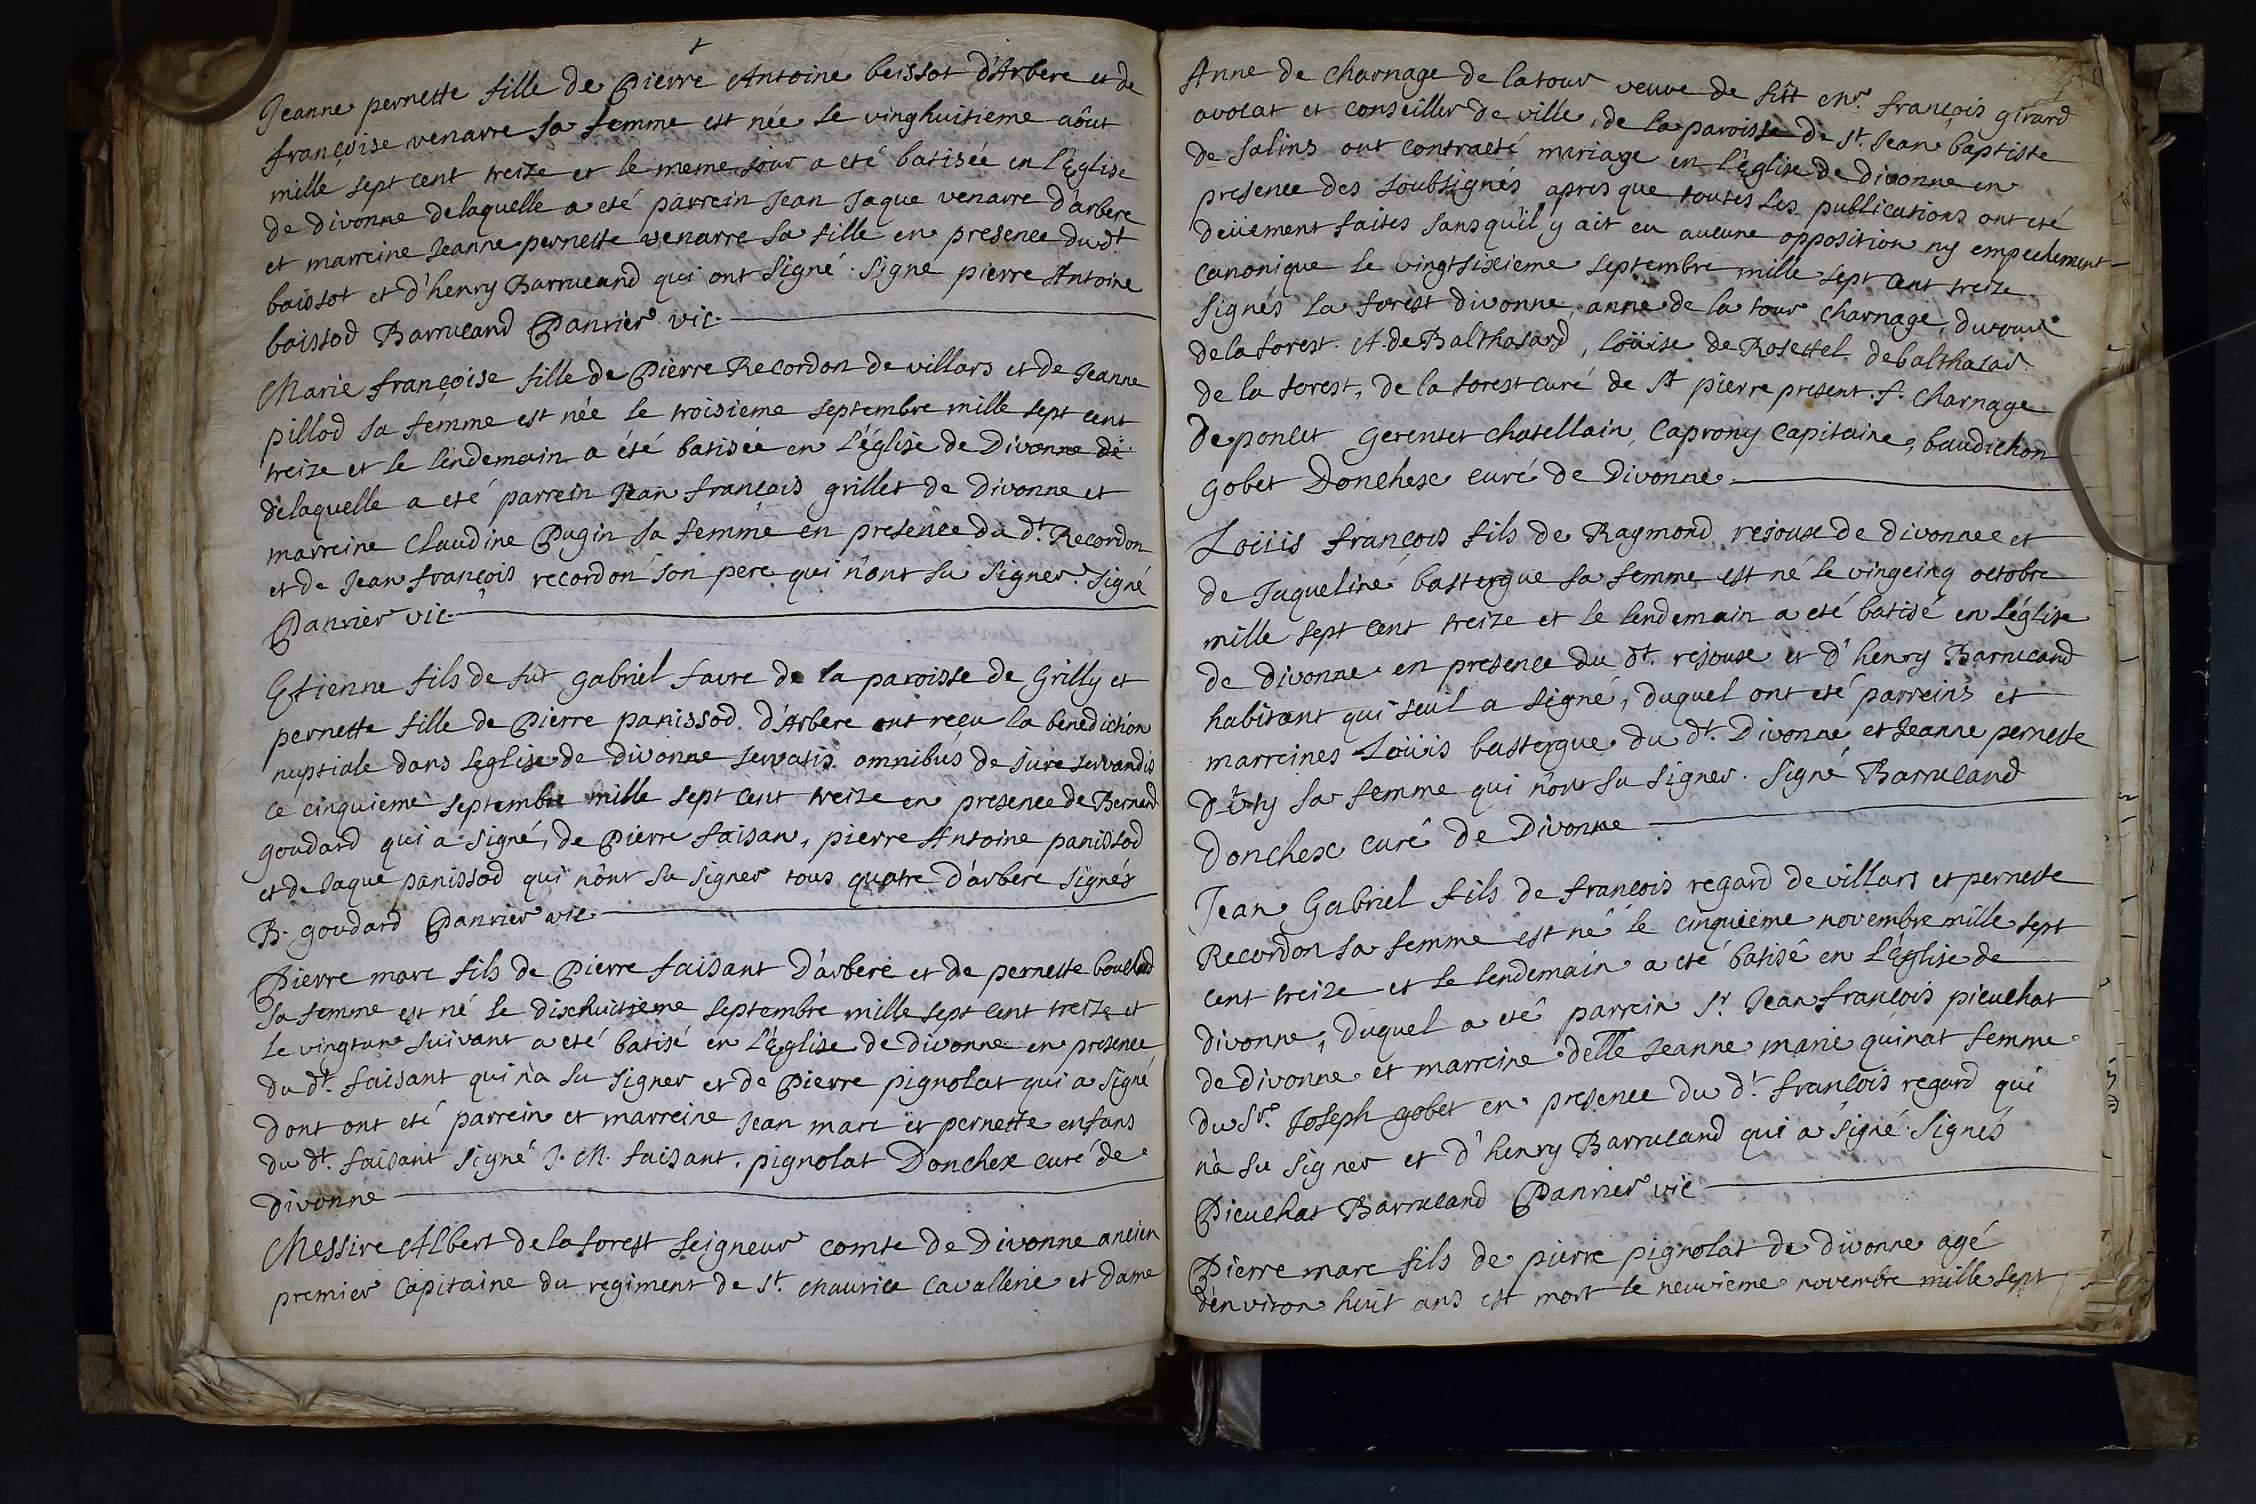 Jeanne pernette fille de Pierre Antoine beissot d'Arbere et de
françoise venarre sa femme est née le vinghuitieme aôut
mille sept cent treize et le meme jour a eté batisée en l'Eglise
de divonne delaquelle a eté parrein Jean Jaque venarre d'arbere
et marreine Jeanne pernette venarre sa fille en presence du dt
baissot et d'henry Barrucand qui ont signé. signe pierre Antoine
baissod Barrucand Panrier vic.
Marie françoise fille de Pierre Recordon de villars et de Jeanne
pillod sa femme est née le troisieme septembre mille sept cent
treize et le lendemain a été batisée en l'église de Divonne de
delaquelle a eté parrein Jean françois grillet de Divonne et
marreine Claudine Pugin sa femme en presence du dt. Recordon
et de Jean françois recordon son pere qui n'ont su signer. signé
Panrier vic.
Etienne fils de fut gabriel favre de la paroisse de Grilly et
pernette fille de Pierre panissod d'Arbere ont reçu la benediction
nuptiale dans leglise de divonne servatis omnibus de jure servandis
ce cinquieme septembre mille sept cent treize en presence de Bernard
goudard qui a signé, de Pierre faisan, pierre Antoine panissod
et de Jaque panissod qui n'ont su signer tous quatre d'arbere signés
B. goudard Panrier vic.
Pierre marc fils de Pierre faisant d'arbere et de pernette bouclad
sa femme est né le dixhuitieme septembre mille sept cent treize et
le vingtun suivant a eté batisé en l'Eglise de divonne en presence
du dt. faisant qui n'a su signer et de Pierre pignolat qui a signé
dont ont eté parrein et marreine Jean marc et pernette enfans
du dt. faisant signé J. M. faisant, pignolat Donchex curé de
divonne
Messire Albert de la forest seigneur comte de Divonne ancien
premier Capitaine du regiment de St. Maurice cavallerie et dame
Anne de Charnage de la tour veuve de fût Mr. françois girard
avocat et conseiller de ville, de la paroisse de St. Jean baptiste
de salins ont contracté mariage en l'Eglise de divonne en
presence des soubsignés apres que toutes les publications ont eté
deüement faites sans qu'il y ait eu aucune opposition ny empechement
Canonique le vingtsixieme septembre mille sept cent treize
signés la forest divonne, anne de la tour Charnage,
de la forest. A. de Balthasard, loüise de Rosettel debalthasar
de la forest, de la forest curé de st pierre present. f. Charnage
De poncet Gerentet chatellain, Caprony Capitaine, baudichon
gobet Donchex curé de Divonne.
Loüis françois fils de Raymond rejoux de divonne et
de Jaqueline bastergue sa femme est né le vingcinq octobre
mille sept cent treize et le lendemain a eté batisé en l'église
de divonne en presence du dt. rejouse et d'henry Barrucand
habitant qui seul a signé, duquel ont eté parreins et
marreines Loüis bastergue du dt. Divonne et Jeanne pernette
sa femme qui n'ont su signer. signé Barrucand
Donchex curé de Divonne
Jean Gabriel fils de françois regard de villars et pernette
Recordon sa femme est né le cinquieme novembre mille sept
cent treize et le lendemain a eté batisé en l'Eglise de
divonne, Duquel a eté parrein sr. Jean françois picuchat
de divonne et marreine delle Jeanne marie quinat femme
du Sr. Joseph gobet en presence du dt. françois regard qui
n'a su signer et d'henry Barrucand qui a signé. Signés
Picuchat Barrucand Panrier vic
Pierre marc fils de pierre pignolat de divonne agé
d'environ huit ans est mort le neuvieme novembre mille sept